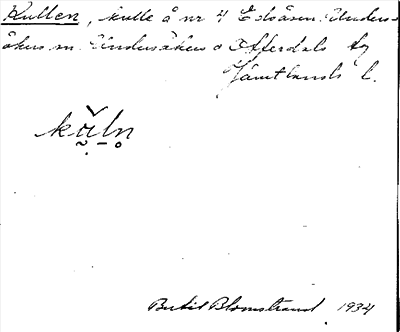 Kullen, kulle å nr 4 Edsåsen. Unders-
åkers sn. Undersåkers o Offerdals tg
Jämtlands l.
Bertil Blomstrand 1934